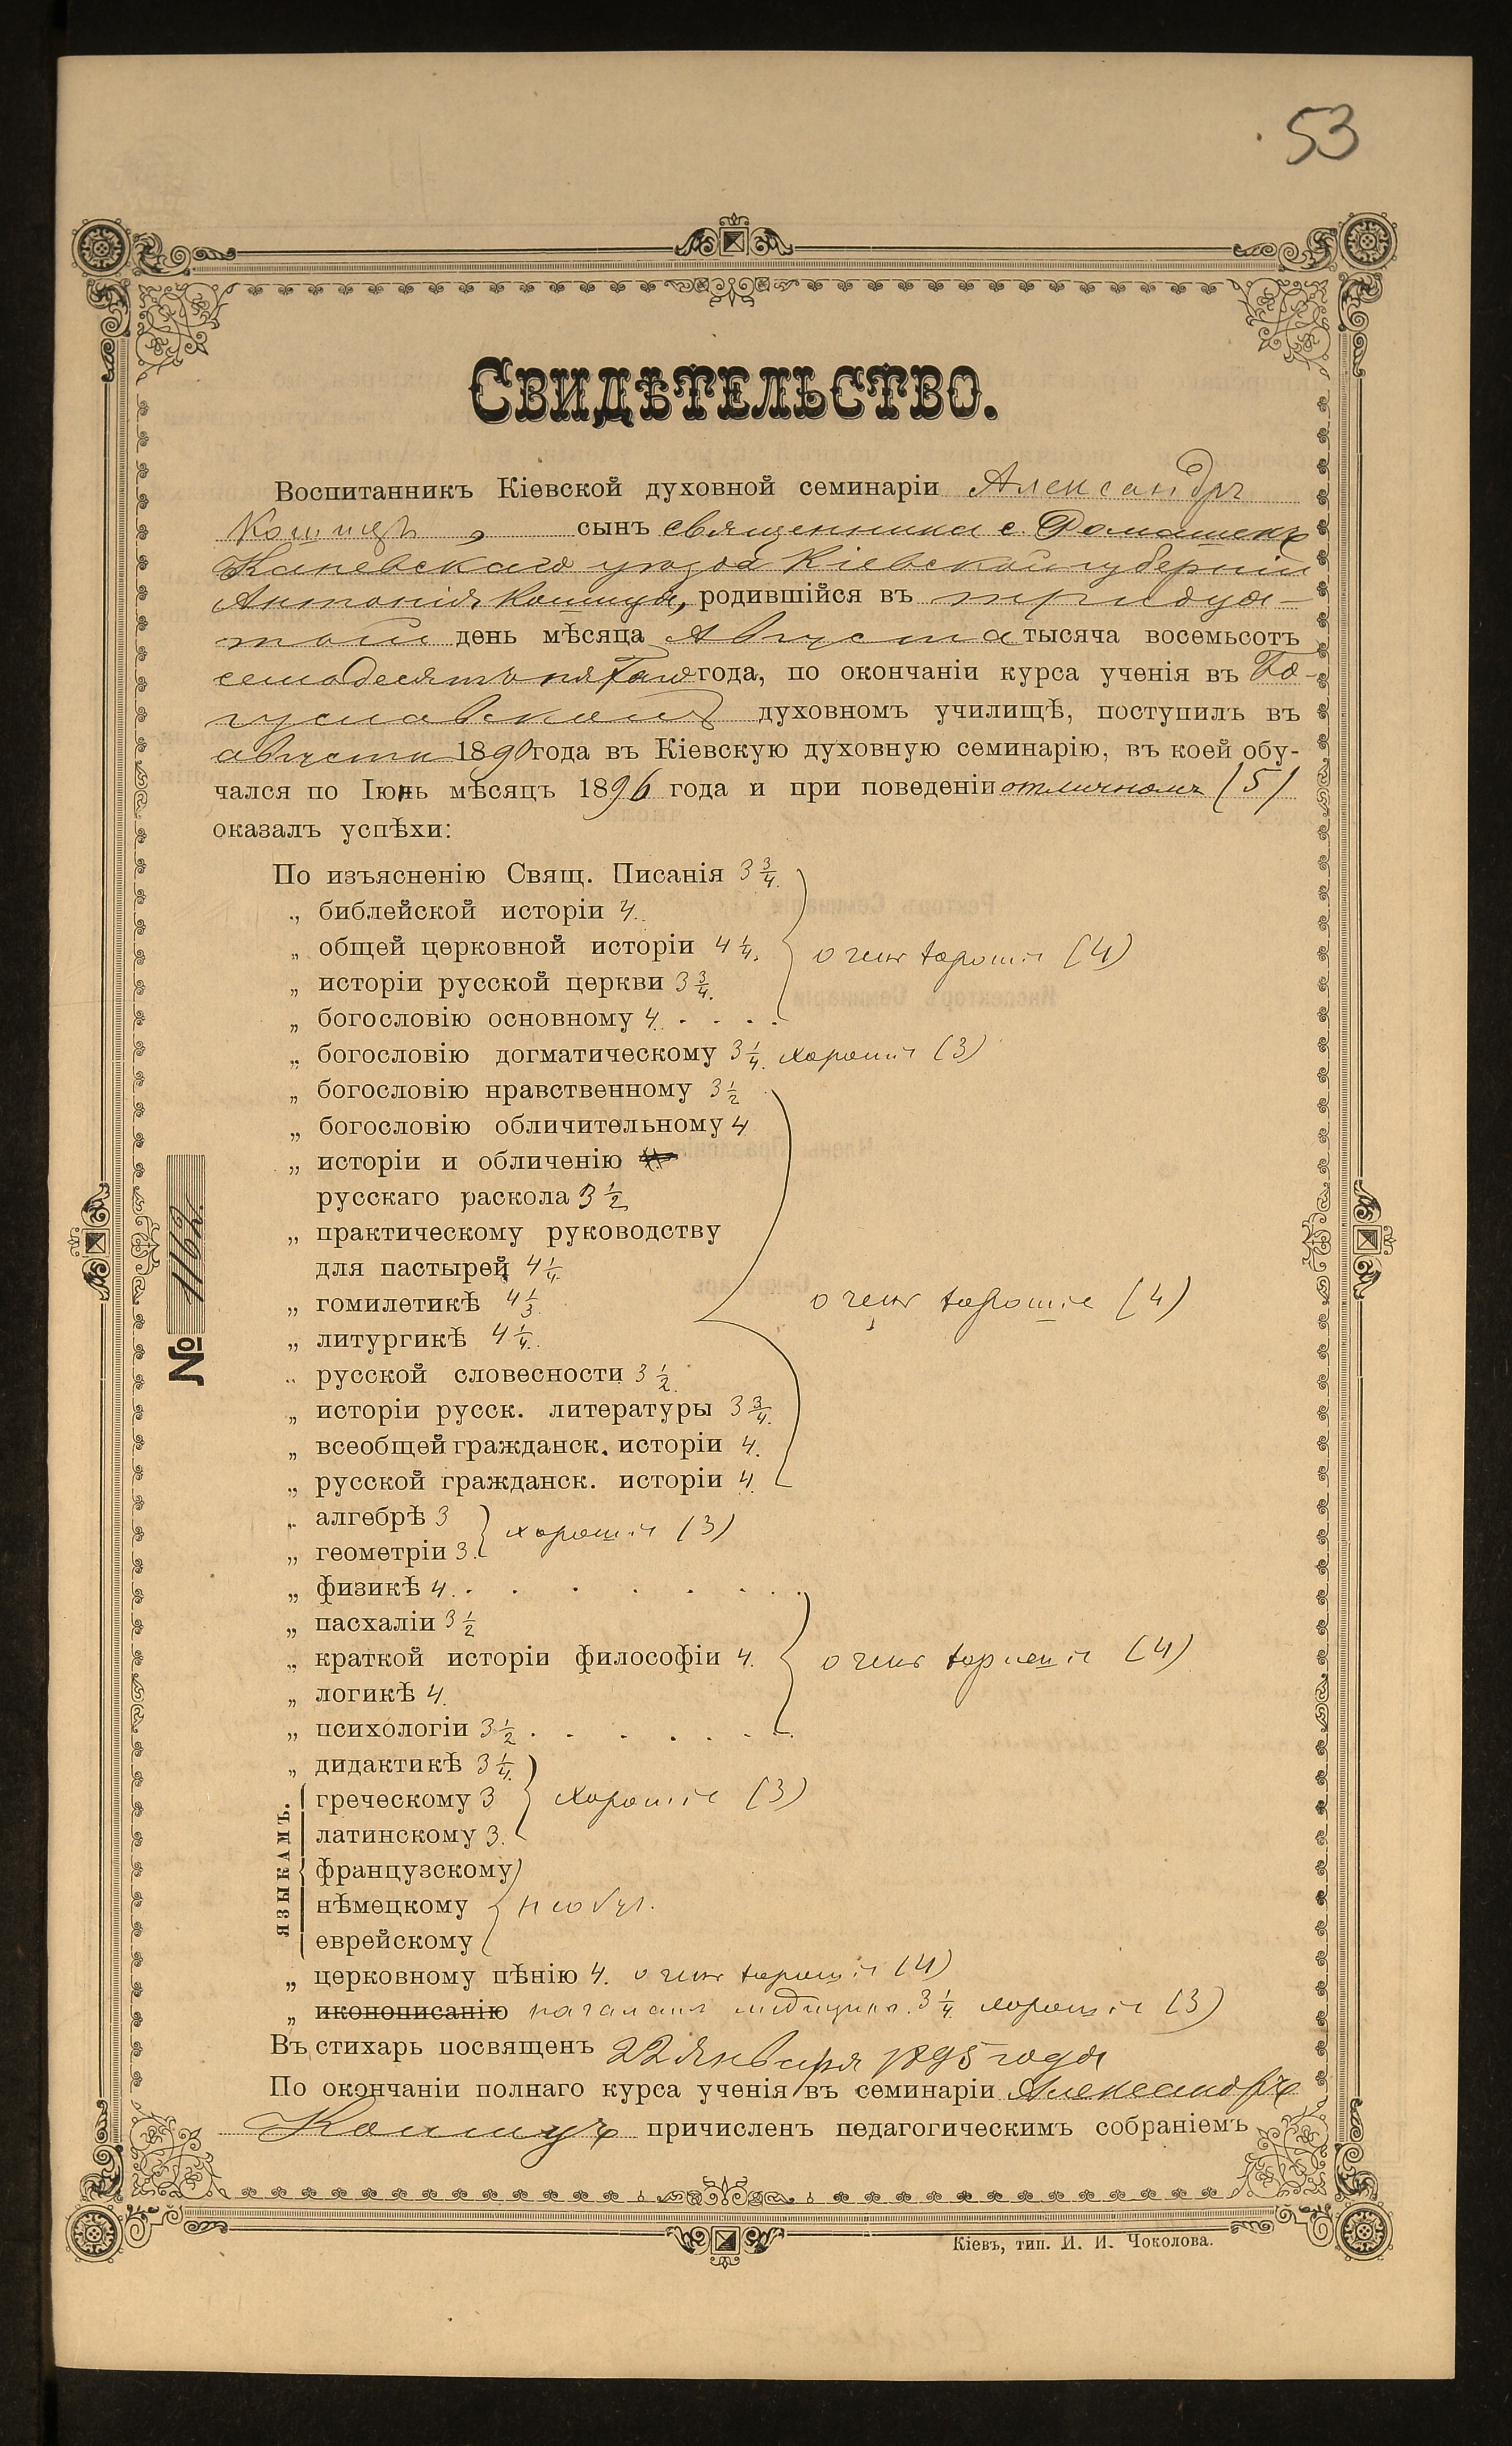 53
Свидѣтельство.
Воспитанникъ Кіевской духовной семинаріи Александръ
Кошицъ, сынъ священника с. Ромашекъ
Каневскаго уѣзда Кіевской губерніи
Антонія Кошица, родившійся въ тридца-
тый день мѣсяца Августа тысяча восемьсотъ
семьдесятъ пятаго года, по окончаніи курса ученія въ Бо-
гуславскомъ духовномъ училищѣ, поступилъ въ
августѣ 1890 года въ Кіевскую духовную семинарію, въ коей обу-
чался по Іюнь мѣсяцъ 1896 года и при поведеніи отличномъ (5)
оказалъ успѣхи:
По изъясненію Свящ. Писанія 3 3/4.
„ библейской исторіи 4.
„ общей церковной исторіи 4 1/4. очень хорошіе (4)
„ исторіи русской церкви 3 3/4.
„ богословію основному 4. . . . .
„ богословію догматическому 3 1/4. хорошіе (3)
„ богословію нравственному 3 1/2
„ богословію обличительному 4
„ исторіи и обличенію
русскаго раскола 3 1/2
„ практическому руководству
для пастырей 4 1/4.
„ гомилетикѣ 4 1/3. очень хорошіе (4)
„ литургикѣ 4 1/4.
„ русской словесности 3 1/2.
„ исторіи русск. литературы 3 3/4.
„ всеобщей гражданск. исторіи 4.
„ русской гражданск. исторіи 4.
„ алгебрѣ 3 хорошіе (3)
„ геометріи 3.
„ физикѣ 4. . . . . . . .
„ пасхаліи 3 1/2
„ краткой исторіи философіи 4. очень хорошіе (4)
„ логикѣ 4.
„ психологіи 3 1/2 . . . . . . .
„ дидактикѣ 3 1/4.
языкамъ.
греческому 3 хорошіе (3)
латинскому 3.
французскому
нѣмецкому не обуч.
еврейскому
„ церковному пѣнію 4. очень хорошіе (4)
„ иконописанію началамъ медицины. 3 1/4. хорошіе (3)
Въ стихарь посвященъ 22 Января 1895 года
По окончаніи полнаго курса ученія въ семинаріи Александръ
Кошицъ причисленъ педагогическимъ собраніемъ
№
Кіевъ, тип. И. И. Чоколова.